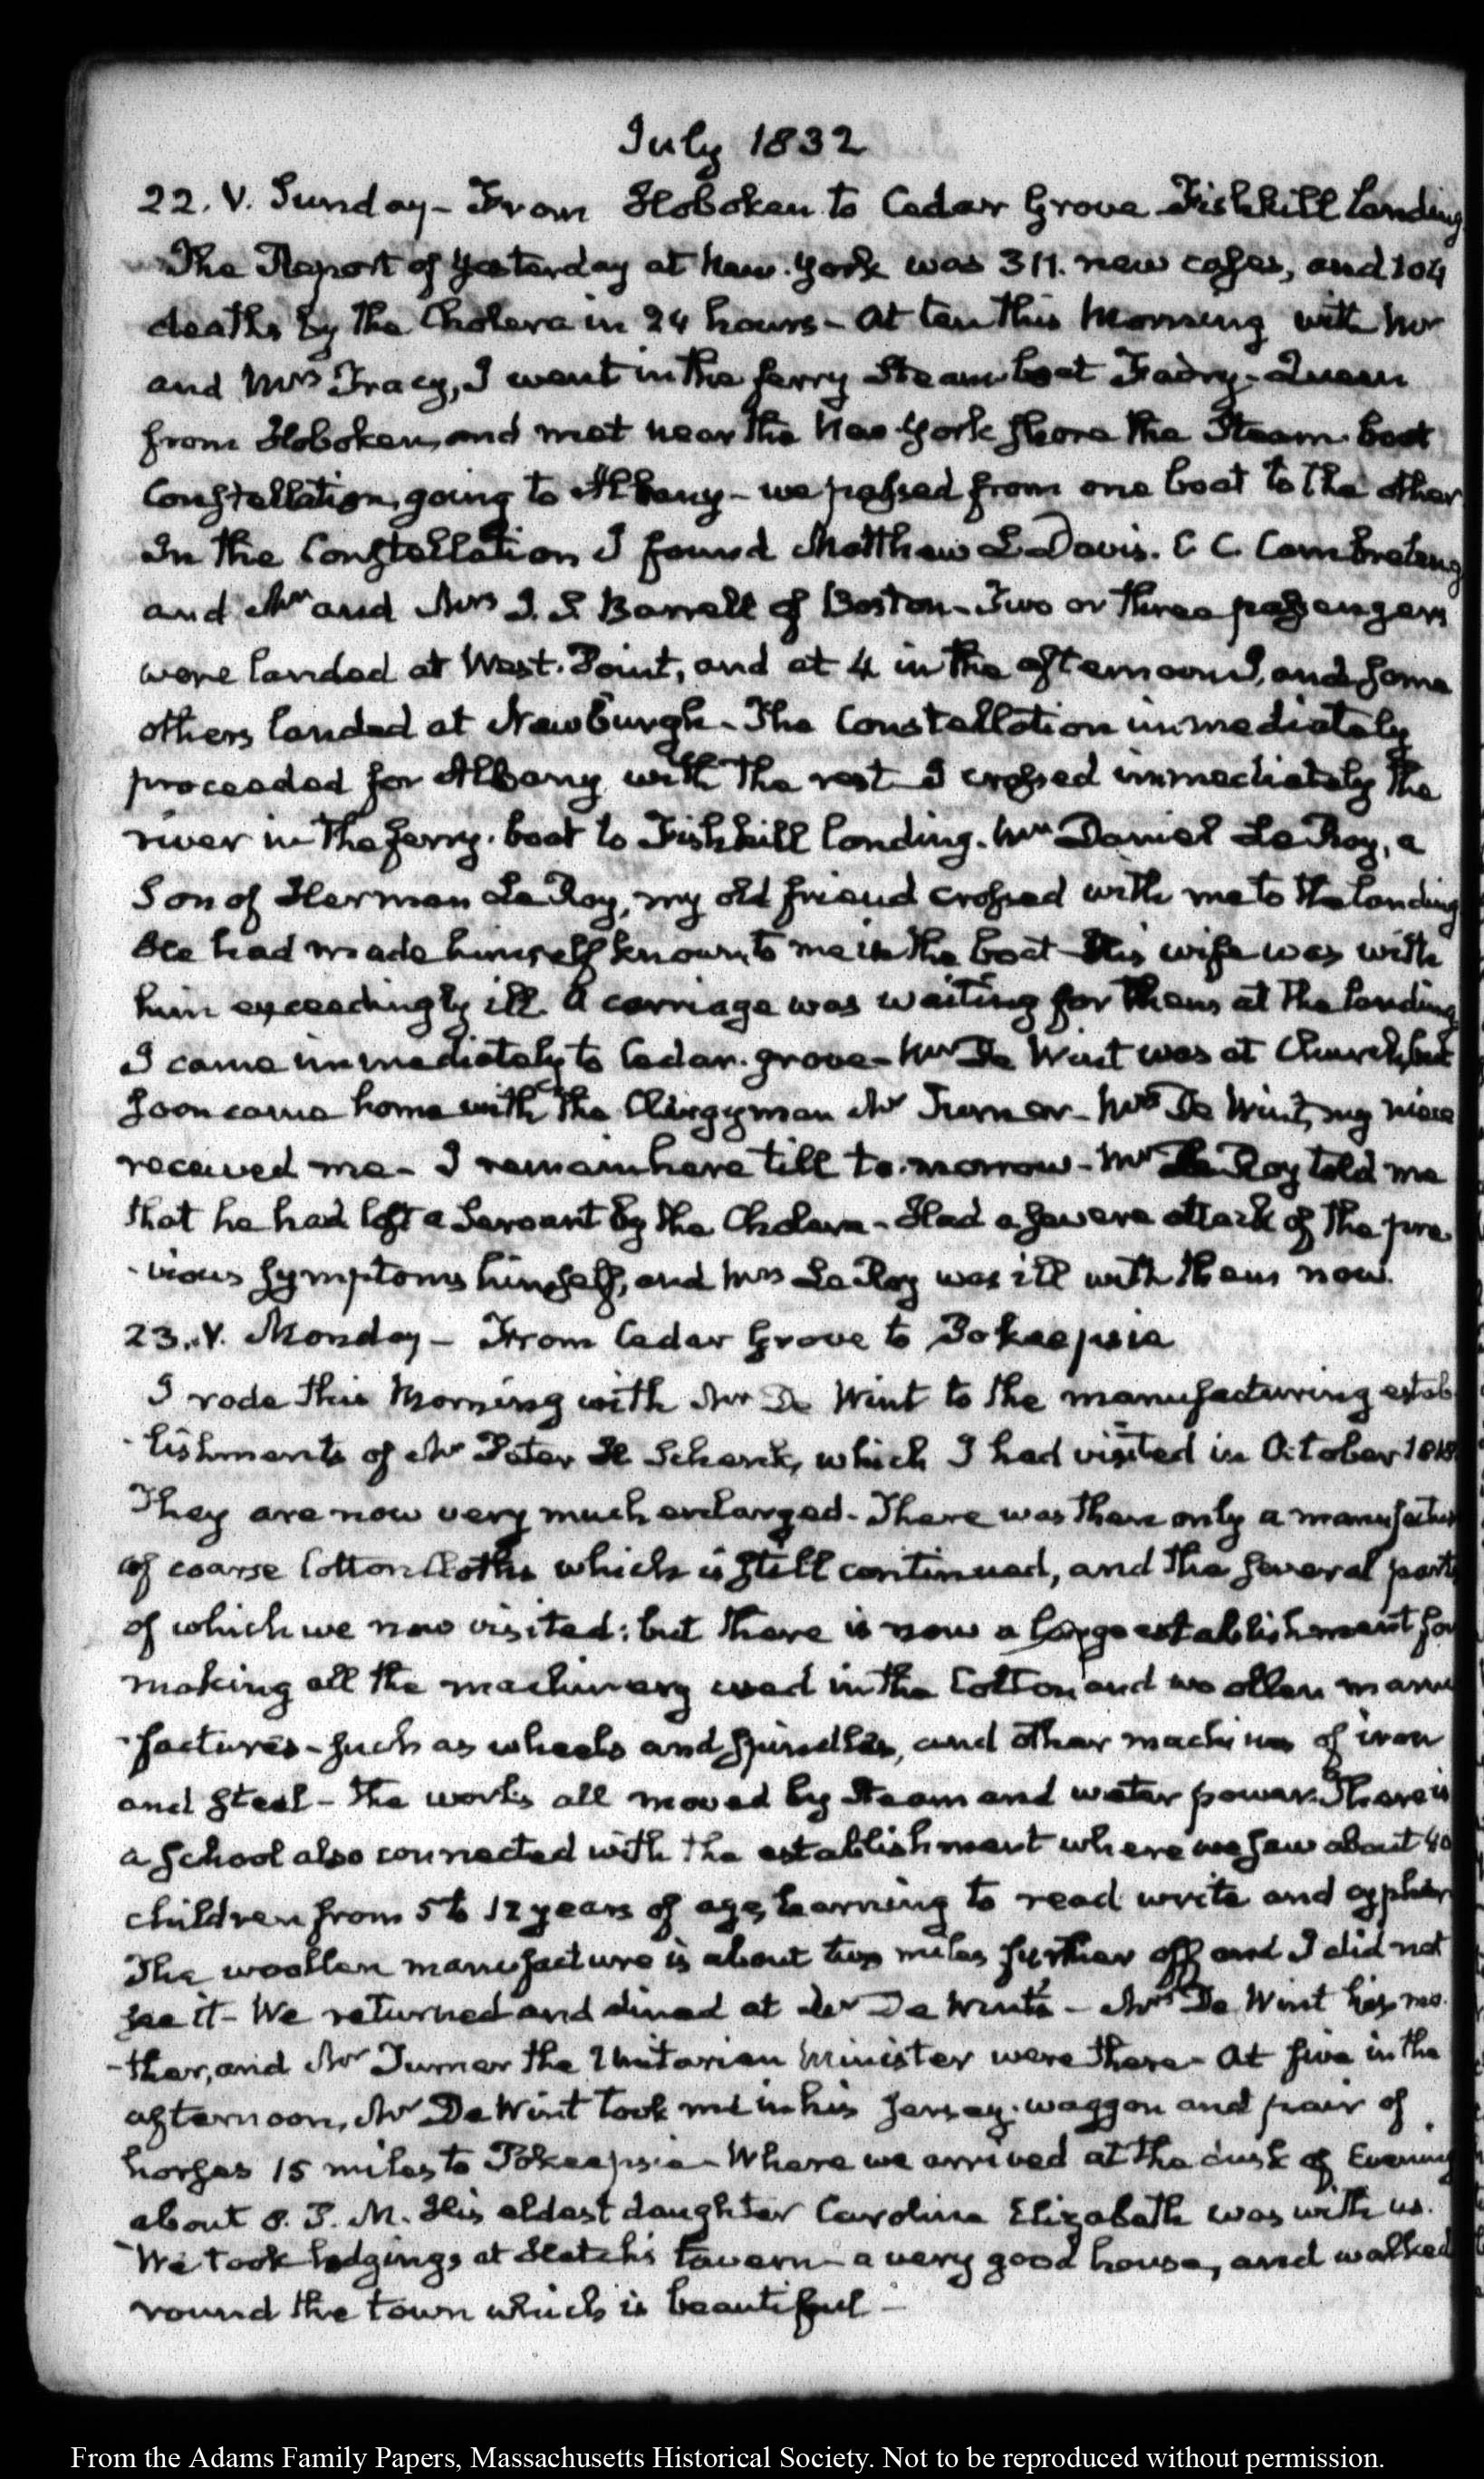 July 1832
22. V. Sunday – From Hoboken to Cedar Grove Fishkill Landing
The Report of yesterday at New-York was 311. new cases, and 104
deaths by the Cholera in 24 hours – At ten this Morning with Mr
and Mrs Tracy, I went in the ferry Steam boat Fairy-Queen
from Hoboken, and met near the New York shore the Steam-boat
Constellation, going to Albany – we passed from one boat to the other
In the Constellation I found Matthew L Davis. C C. Cambreleng
and Mr and Mrs J. S Barrell of Boston – Two or three passengers
were landed at West-Point, and at 4 in the afternoon I, and some
others landed at Newburgh – The Constellation immediately
proceeded for Albany with the rest I crossed immediately the
river in the ferry-boat to Fishkill landing. Mr Daniel Le Roy, a
Son of Herman Le Roy, my old friend crossed with me to the landing
He had made himself known to me in the boat – His wife was with
him exceedingly ill. A carriage was waiting for them at the landing
I came immediately to Cedar-grove – Mr De Wint was at Church, but
soon came home with the Clergyman Mr Turner – Mrs De Wint, my niece
received me – I remain here till to-morrow – Mr Le Roy told me
that he had lost a Servant by the Cholera – Had a severe attack of the pre-
-vious symptoms himself, and Mrs Le Roy was ill with them now.
23. V. Monday – From Cedar Grove to Pokeepsie
I rode this Morning with Mr De Wint to the manufacturing estab-
-lishments of Mr Peter H Schenk, which I had visited in October 1818
They are now very much enlarged – There was then only a manufactu
of coarse Cotton Cloths which is still continued, and the several parts
of which we now visited: but there is now a large establishment for
making all the machinery used in the Cotton and woollen manu
-factures – such as wheels and spindles, and other machines of iron
and steel – The works all moved by steam and water power. There is
a School also connected with the establishment where we saw about 40
children from 5 to 12 years of age, learning to read write and cypher
The woollen manufacture is about two miles further off and I did not
see it – We returned and dined at Mr De Wint's – Mrs De Wint his mo-
-ther, and Mr Turner the Unitarian Minister were there – At five in the
afternoon, Mr De Wint took me in his Jersey-waggon and pair of
horses 15 miles to Pokeepsie – Where we arrived at the dusk of Evening
about 8. P. M. His eldest daughter Caroline Elizabeth was with us.
We took lodgings at Hatch's tavern – a very good house, and walked
round the town which is beautiful –
From the Adams Family Papers, Massachusetts Historical Society. Not to be reproduced without permission.